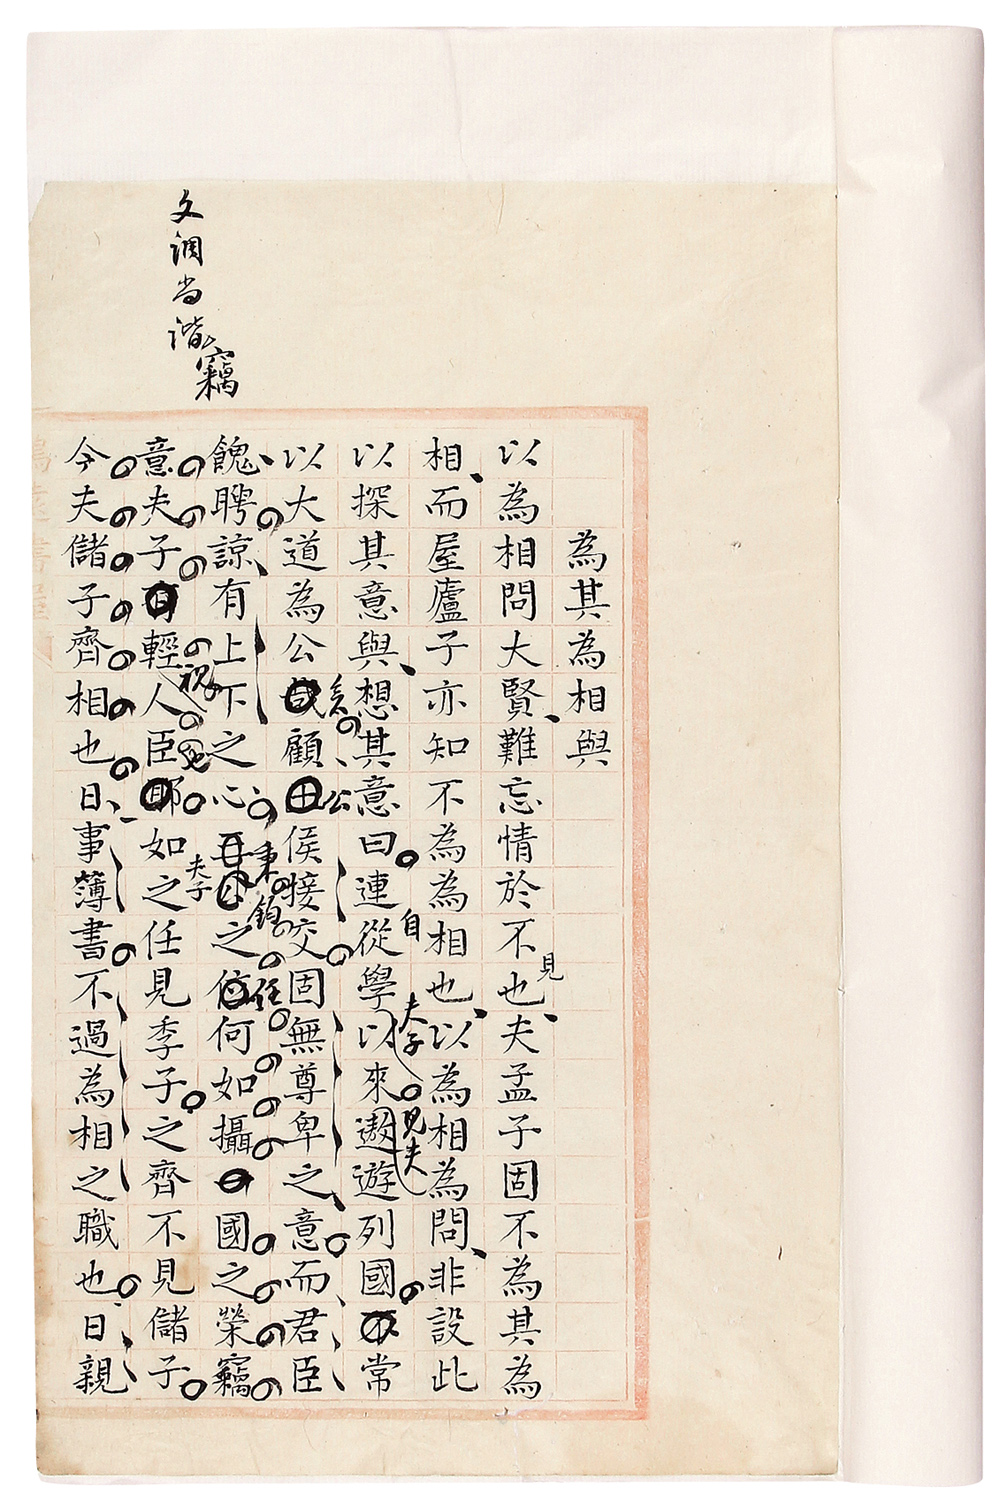 為其為相與
以為相問大賢難忘情於不也夫孟子固不為其為
見
相而屋廬子亦知不為為相也以為相為問非設此
自
夫子
見夫
以探其意與想其意曰連從學以來遨遊列國不常
公
以大道為公或顧侯接交固無尊卑之意而君臣
秉鈞任
餽聘諒有上下之心之何如攝國之榮竊
夫子
視
意夫子自輕人臣耶如之任見季子之齊不見儲子
今夫儲子齊相也日事薄書不過為相之職也日親
文調尚諧
竊